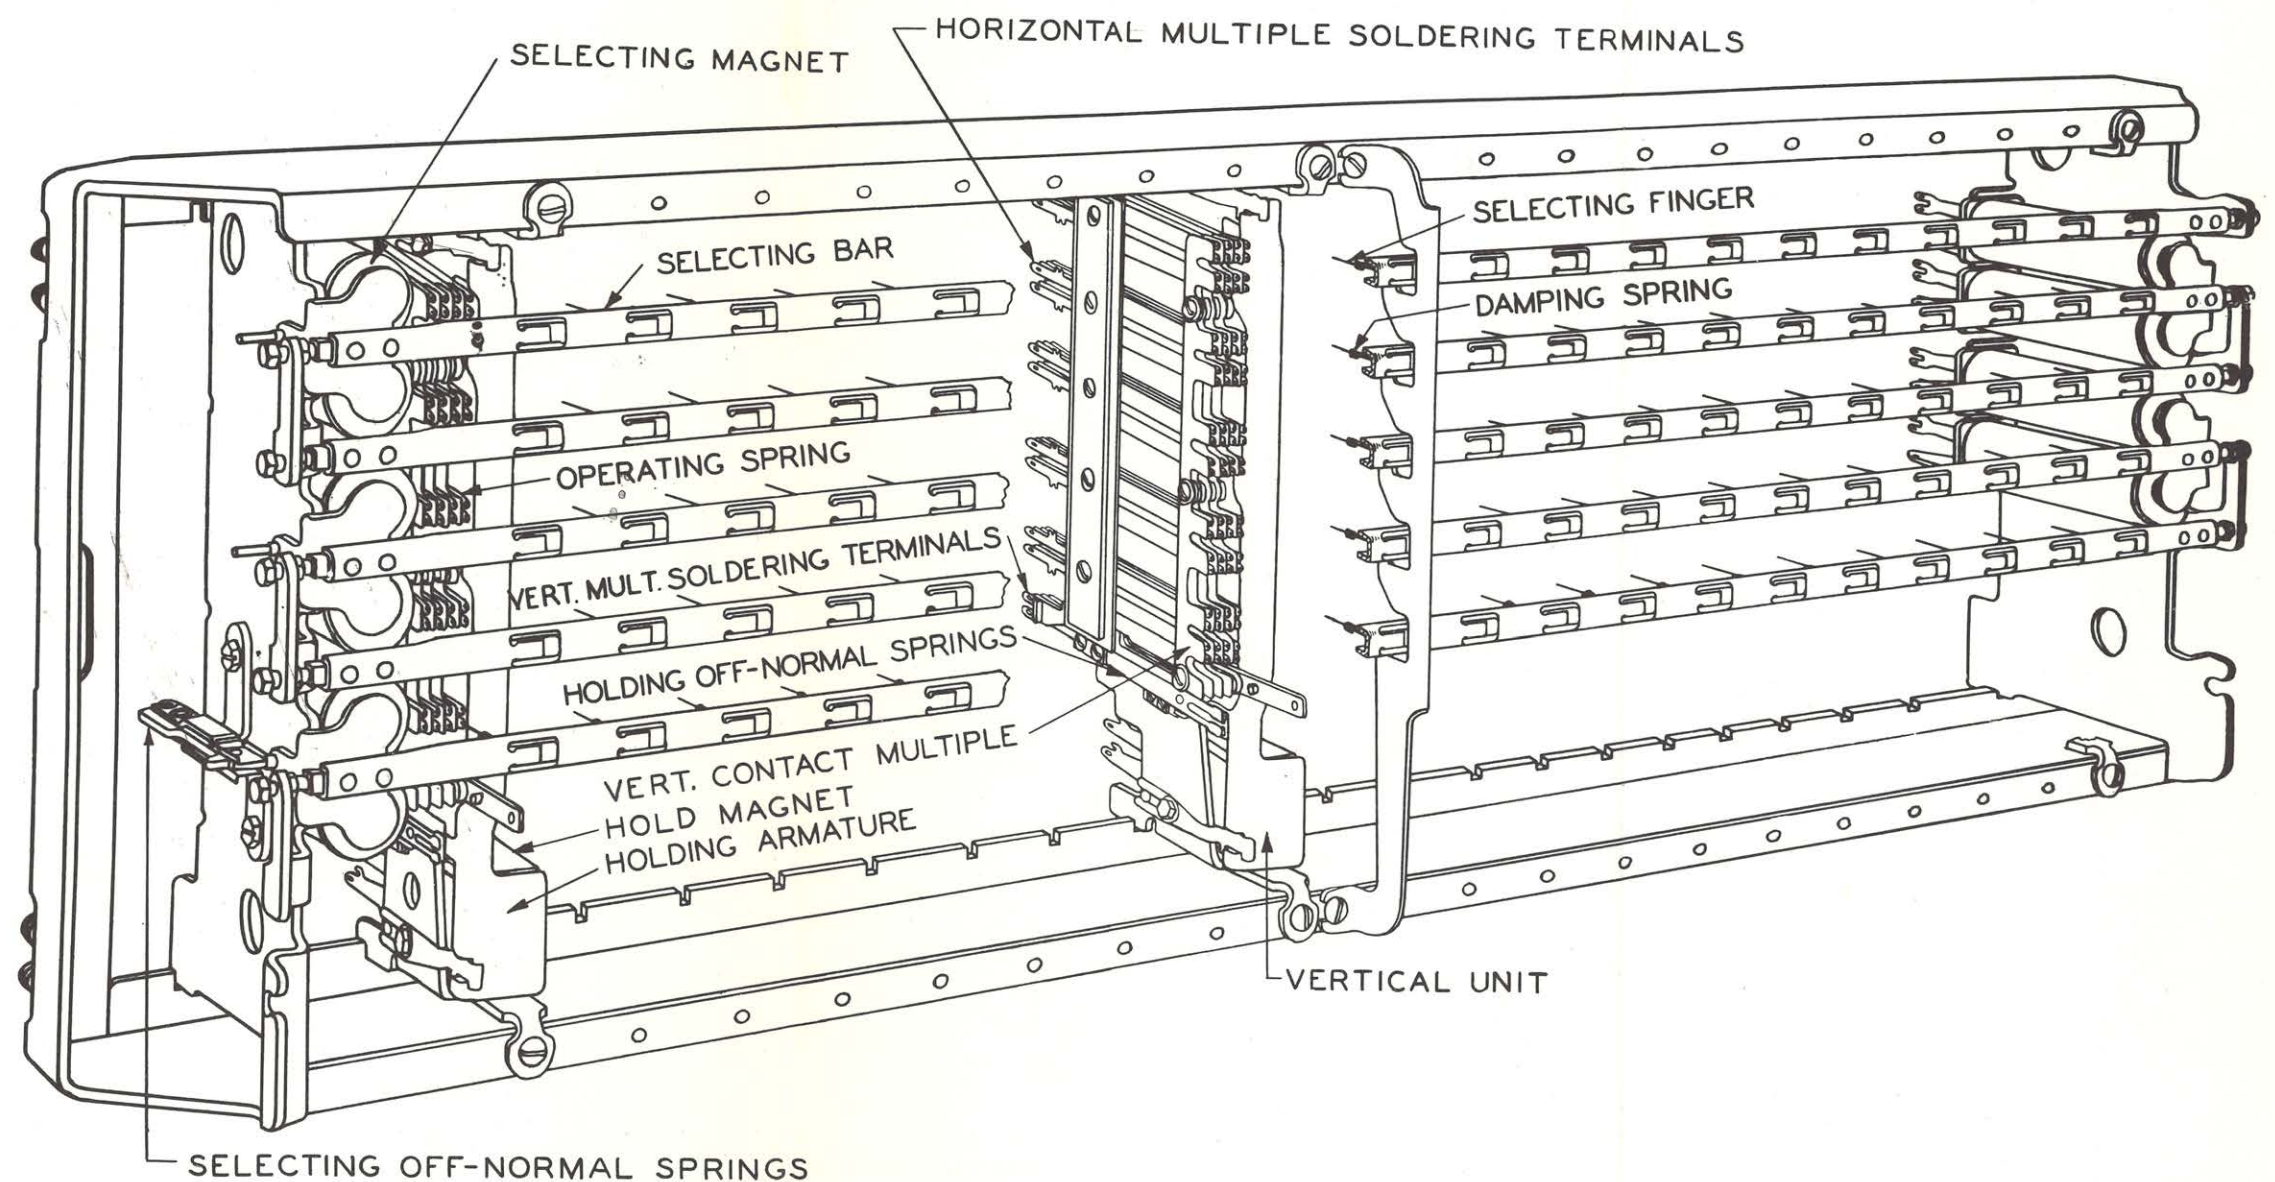 HORIZONTAL MULTIPLE SOLDERING TERMINALS
SELECTING MAGNET
SELECTING FINGER
SELECTING BAR
DAMPING SPRING
OPERATING SPRING
VERT. MULT. SOLDERING TERMINALS
HOLDING OFF-NORMAL SPRINGS
VERT. CONTACT MULTIPLE
HOLD MAGNET
HOLDING ARMATURE
VERTICAL UNIT
SELECTING OFF-NORMAL SPRINGS